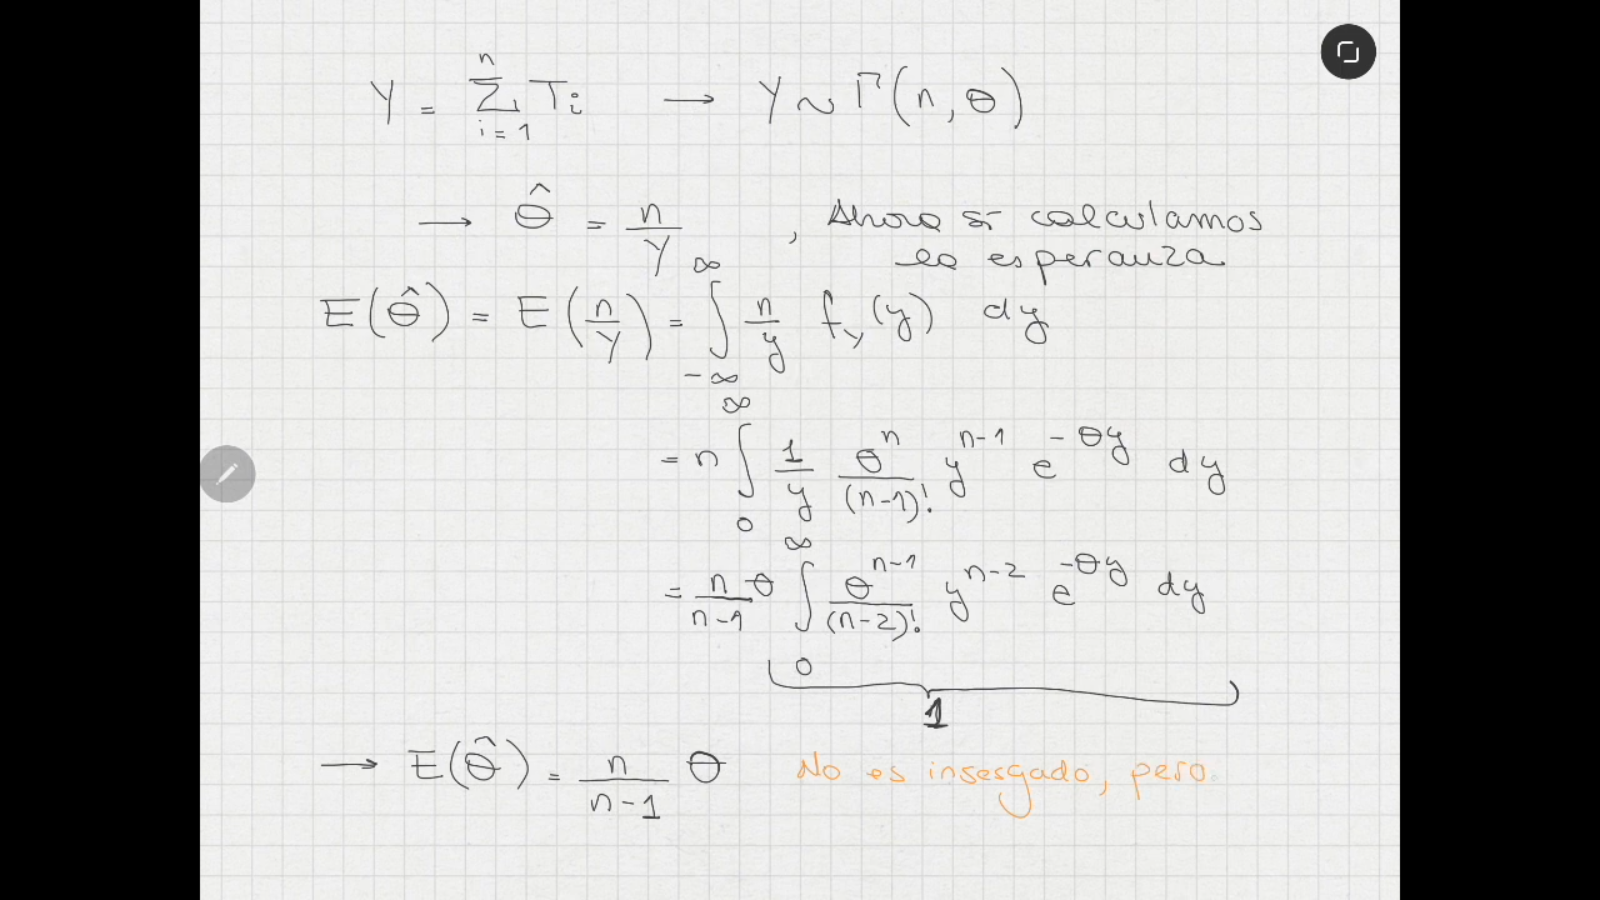 Y = \sum_{i=1}^{n} T_i → Y ~ Γ(n, θ)
→ \hat{θ} = \frac{n}{Y} , Ahora sí calculamos
la esperanza
E(\hat{θ}) = E(\frac{n}{Y}) = \int_{-∞}^{∞} \frac{n}{y} f_Y(y) dy
= n \int_{0}^{∞} \frac{1}{y} \frac{θ^n}{(n-1)!} y^{n-1} e^{-θy} dy
= \frac{n}{n-1} θ \int_{0}^{∞} \frac{θ^{n-1}}{(n-2)!} y^{n-2} e^{-θy} dy
1
→ E(\hat{θ}) = \frac{n}{n-1} θ No es insesgado, pero